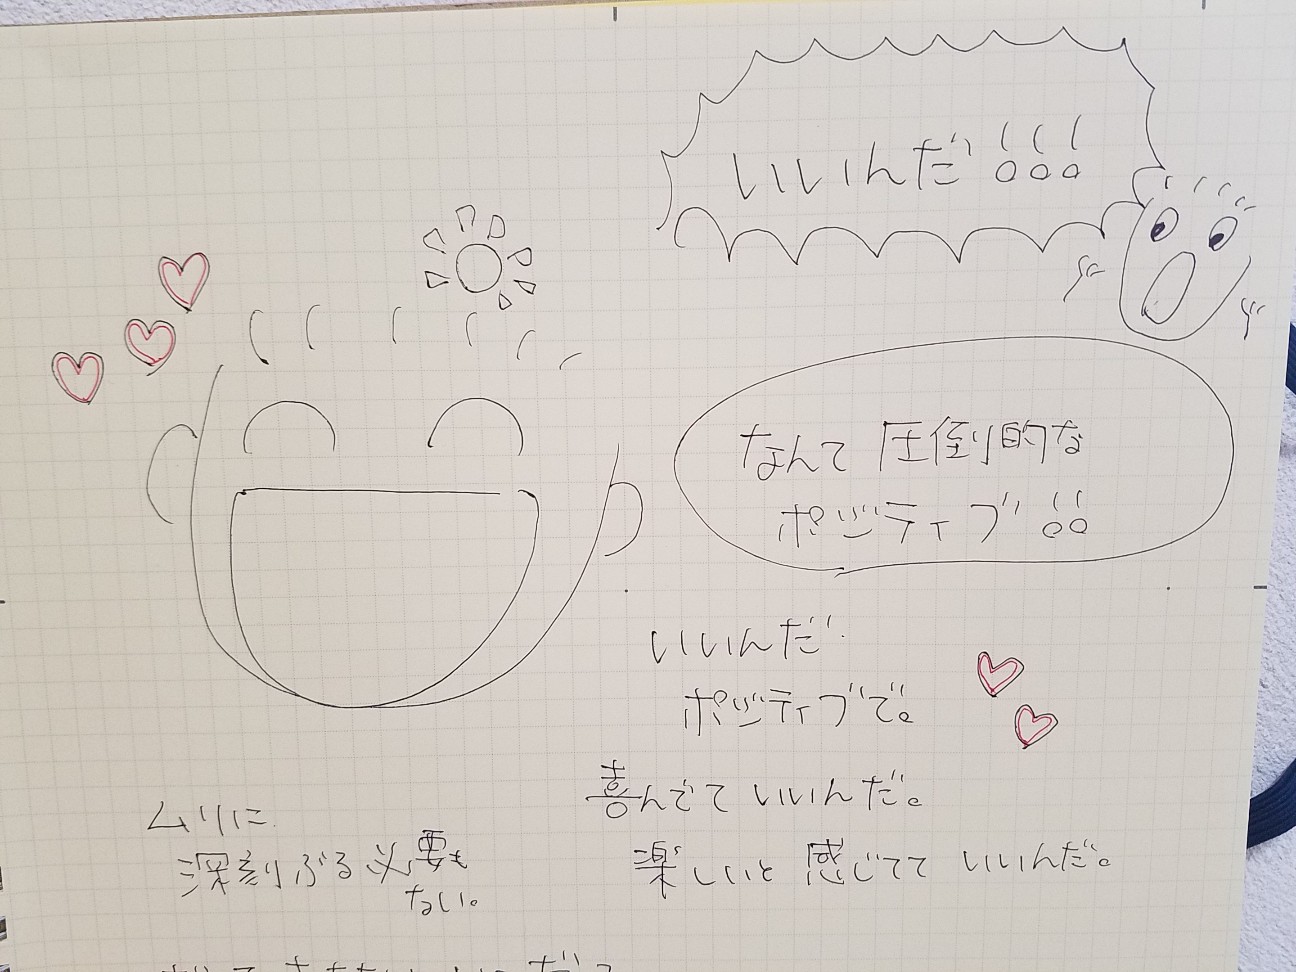 いいんだ!!!
なんて 圧倒的な
ポジティブ!!
いいんだ
ポジティブで。
喜んでて いいんだ。
楽しいと 感じてて いいんだ。
ムリに
深刻ぶる必要も
ない。